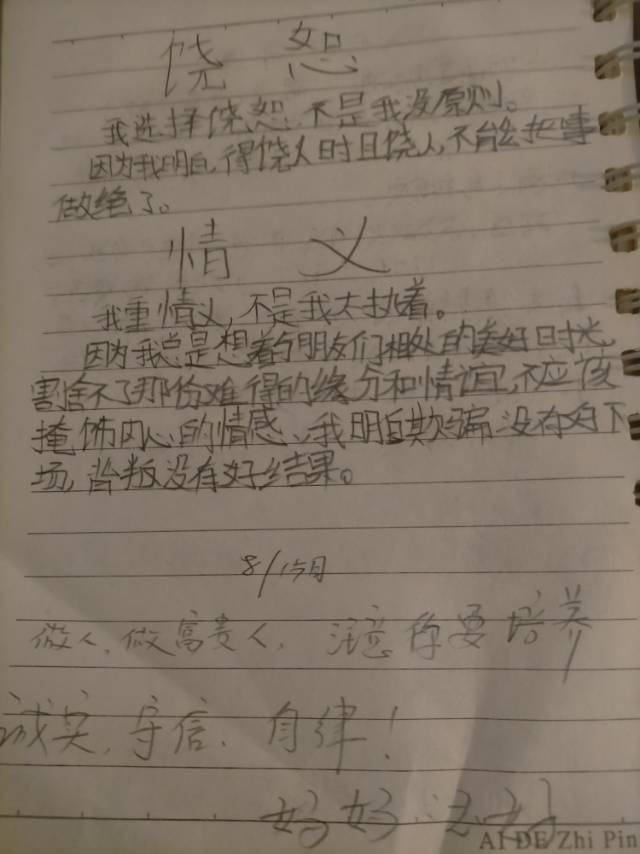 饶 恕
我选择饶恕,不是我没原则。
因为我明白,得饶人时且饶人,不能把事
做绝了。
情 义
我重情义,不是我太执着。
因为我总是想着与朋友们相处的美好时光,
割舍不了那份难得的缘分和情谊,不应该
掩饰内心的情感、我明白欺骗没有好下
场,背叛没有好结果。
8/15日
做人,做富贵人,注意你要培养
诚实,守信、自律!
好好
AI DE Zhi Pin